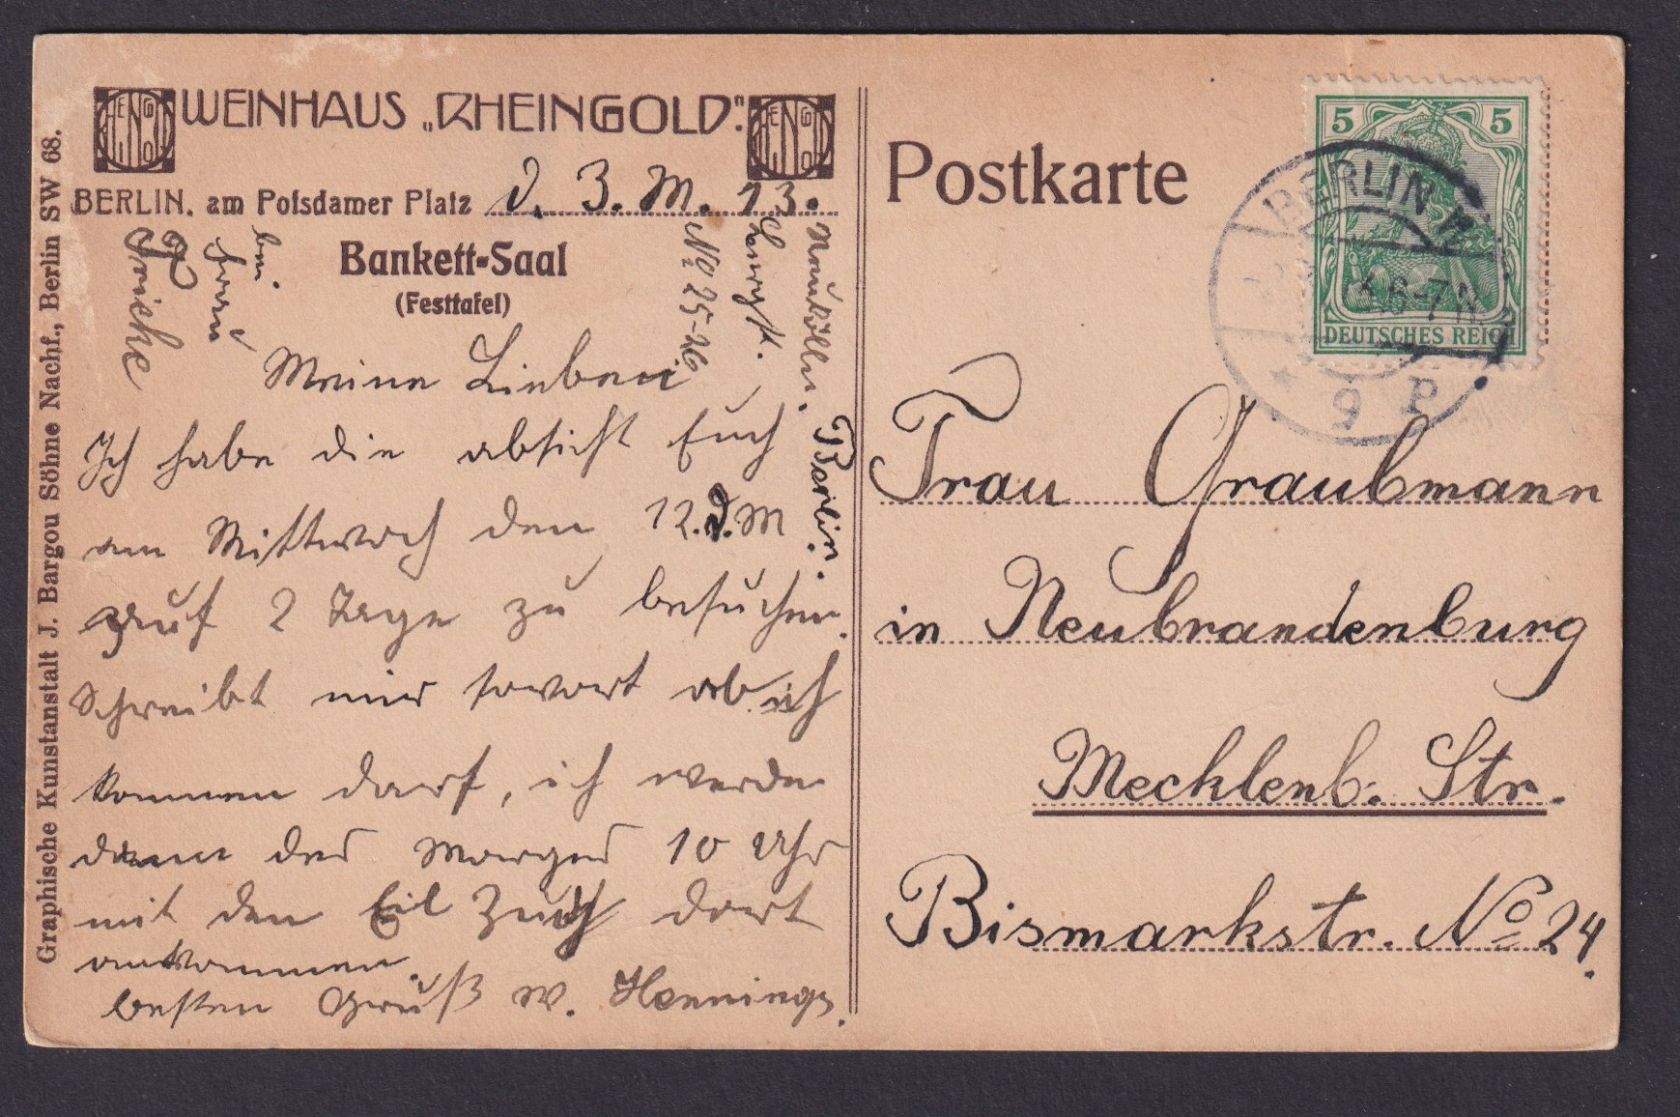 WEINHAUS „RHEINGOLD".
BERLIN. am Potsdamer Platz d. 3. M. 13.
Bankett-Saal
(Festtafel)
Neukölln. Berlin.
No 25-26
bei
Frau
Fricke
Meine Lieben
Ich habe die absicht Euch
am Mittwoch den 12. d. M
auf 2 Tage zu besuchen.
Schreibt mir sovort ob ich
kommen darf, ich werde
dann des Morgens 10 Uhr
mit den Eil Zug dort
ankommen.
besten Gruß W. Hennings.
Graphische Kunstanstalt J. Bargou Söhne Nachf., Berlin SW 68.
Postkarte
5 5
DEUTSCHES REICH
BERLIN
6-7 N
* 9 P
Frau Graubmann
in Neubrandenburg
Mecklenb. Str.
Bismarkstr. No 24.